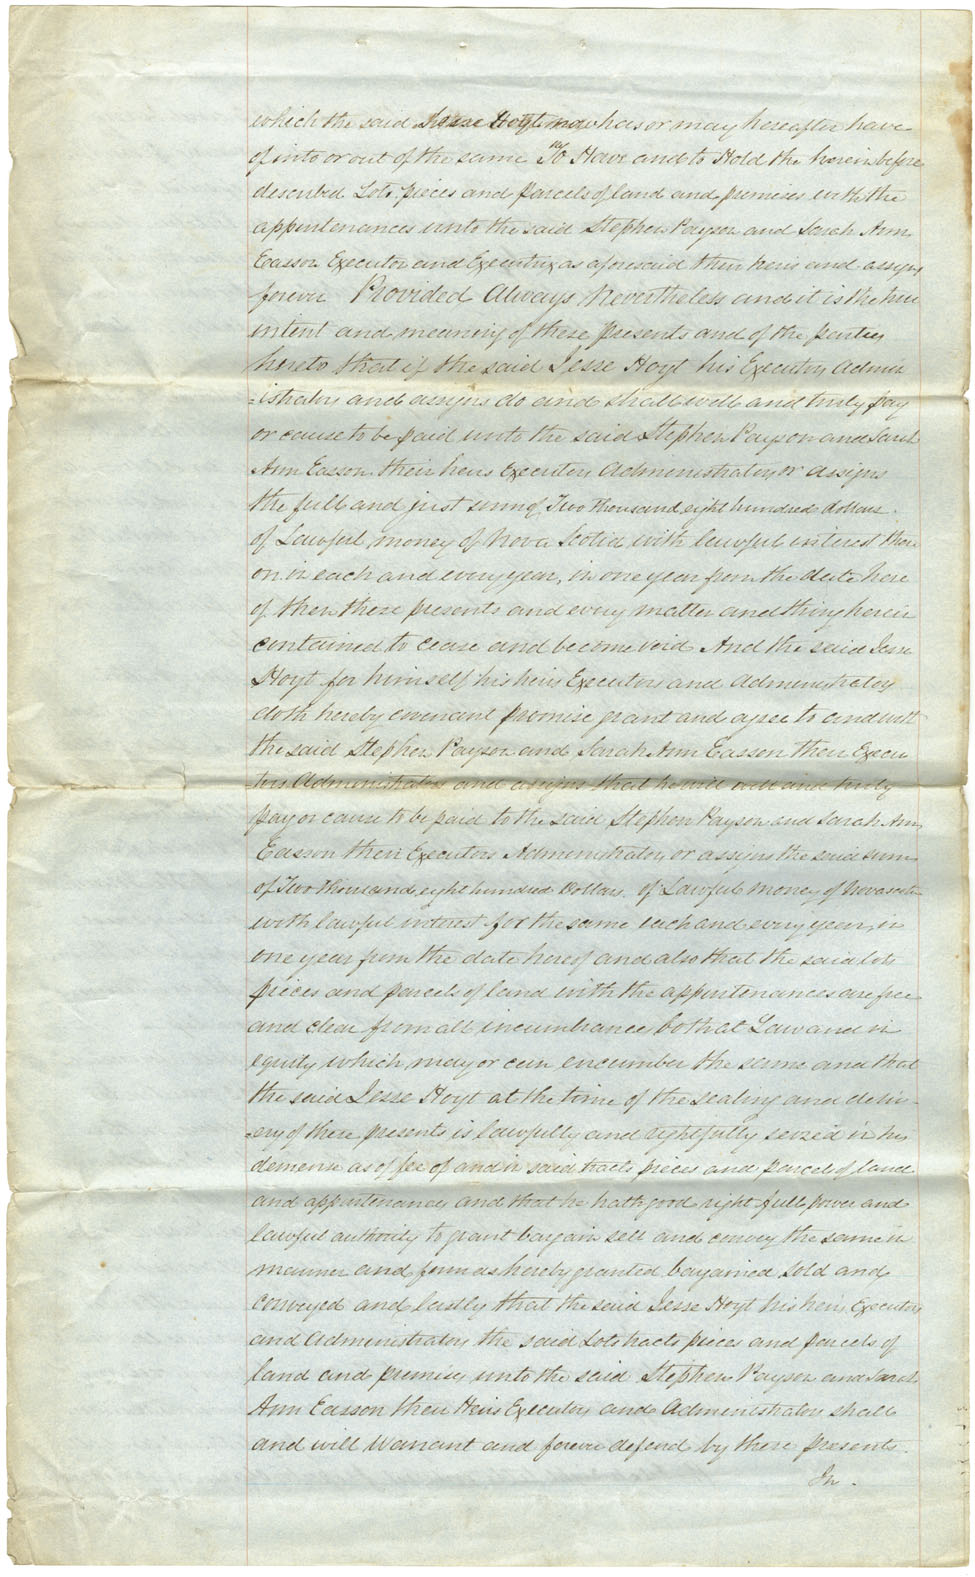 which the said Jesse Hoyt now has or may hereafter have
of into or out of the same To Have and to Hold the hereinbefore
described Lots pieces and parcels of land and premises with the
appurtenances unto the said Stephen Payson and Sarah Ann
Easson Executor and Executrix as aforesaid their heirs and assigns
forever Provided Always Nevertheless and it is the true
intent and meaning of these presents and of the parties
hereto that if the said Jesse Hoyt his Executors Admin
=istrators and assigns do and shall well and truly pay
or cause to be paid unto the said Stephen Payson and Sarah
Ann Easson their heirs Executors Administrators or assigns
the full and just sum of Two thousand eight hundred dollars.
of Lawful money of Nova Scotia with lawful interest there
on in each and every year, in one year from the date here
of then these presents and every matter and thing herein
contained to cease and become void And the said Jesse
Hoyt for himself his heirs Executors and Administrators
doth hereby covenant promise grant and agree to and with
the said Stephen Payson and Sarah Ann Easson their Execu
tors Administrators and assigns that he will well and truly
pay or cause to be paid to the said Stephen Payson and Sarah Ann
Easson their Executors Administrators or assigns the said sum
of Two thousand eight hundred Dollars of Lawful money of Novascotia
with lawful interest for the same each and every year, in
one year from the date hereof and also that the said lots
pieces and parcels of land with the appurtenances are free
and clear from all incumbrance both at Law and in
equity which may or can encumber the same and that
the said Jesse Hoyt at the time of the sealing and deliv-
=ery of these presents is lawfully and rightfully seized in his
demense as of fee of and in said tracts pieces and parcels of land
and appurtenances and that he hath good right full power and
lawful authority to grant bargain sell and convey the same in
manner and form as hereby granted bargained sold and
conveyed and lastly that the said Jesse Hoyt his heirs Executors
and Administrators the said Lots tracts pieces and parcels of
land and premises unto the said Stephen Payson and Sarah
Ann Easson their Heirs Executors and Administrators shall
and will Warrant and forever defend by these presents.
In.